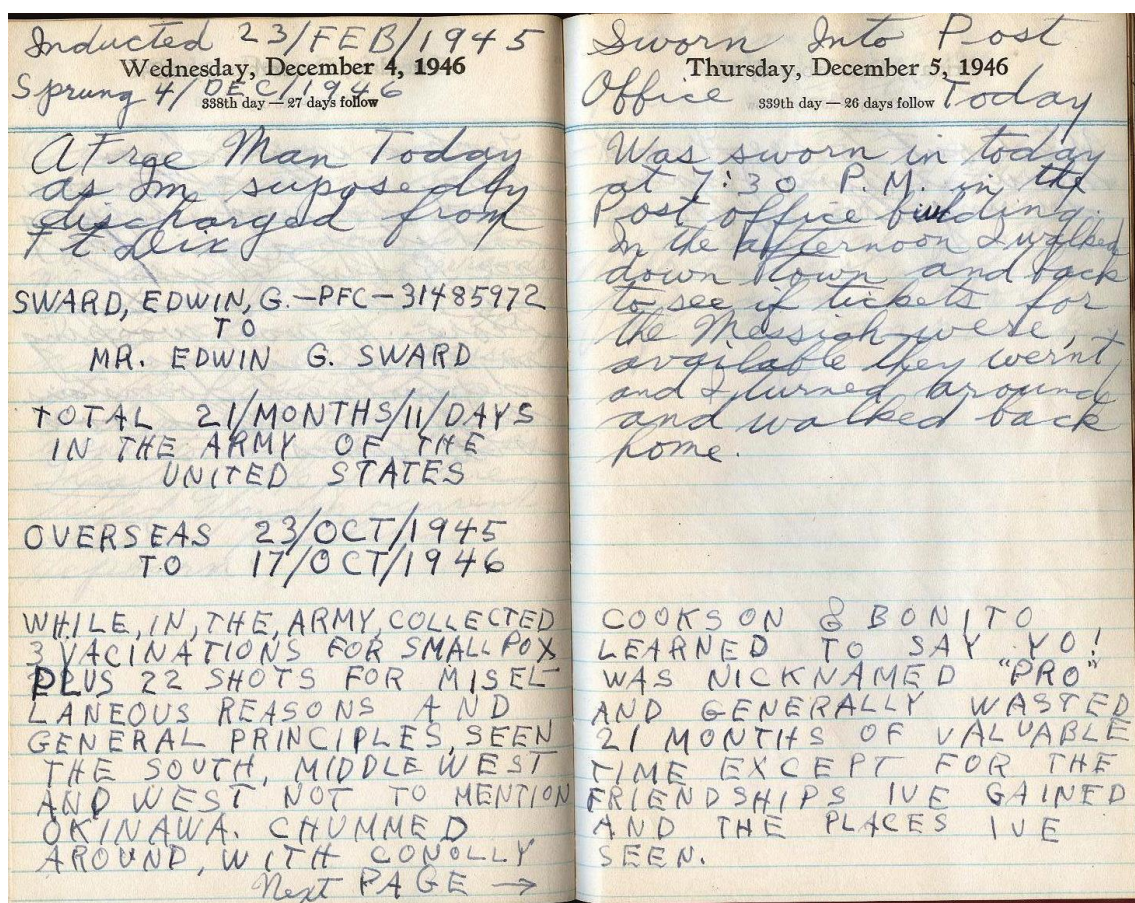 Inducted 23/FEB/1945
Wednesday, December 4, 1946
Sprung 4/DEC/1946
338th day — 27 days follow
A Free Man Today
as Im suposedly
discharged from
Ft Dix
SWARD, EDWIN, G.—PFC—31485972
TO
MR. EDWIN G. SWARD
TOTAL 21/MONTHS/11/DAYS
IN THE ARMY OF THE
UNITED STATES
OVERSEAS 23/OCT/1945
TO 17/OCT/1946
WHILE, IN, THE, ARMY, COLLECTED
3 VACINATIONS FOR SMALL POX
PLUS 22 SHOTS FOR MISEL-
LANEOUS REASONS AND
GENERAL PRINCIPLES, SEEN
THE SOUTH, MIDDLE WEST
AND WEST NOT TO MENTION
OKINAWA. CHUMMED
AROUND, WITH CONOLLY
Next PAGE →
Sworn Into Post
Thursday, December 5, 1946
Office Today
339th day — 26 days follow
Was sworn in today
at 7:30 P.M. in the
Post office building.
In the afternoon I walked
down town and back
to see if tickets for
the Messiah were,
available they wern't
and I turned around
and walked back
home.
COOKSON & BONITO
LEARNED TO SAY YO!
WAS NICKNAMED "PRO"
AND GENERALLY WASTED
21 MONTHS OF VALUABLE
TIME EXCEPT FOR THE
FRIENDSHIPS IVE GAINED
AND THE PLACES IVE
SEEN.